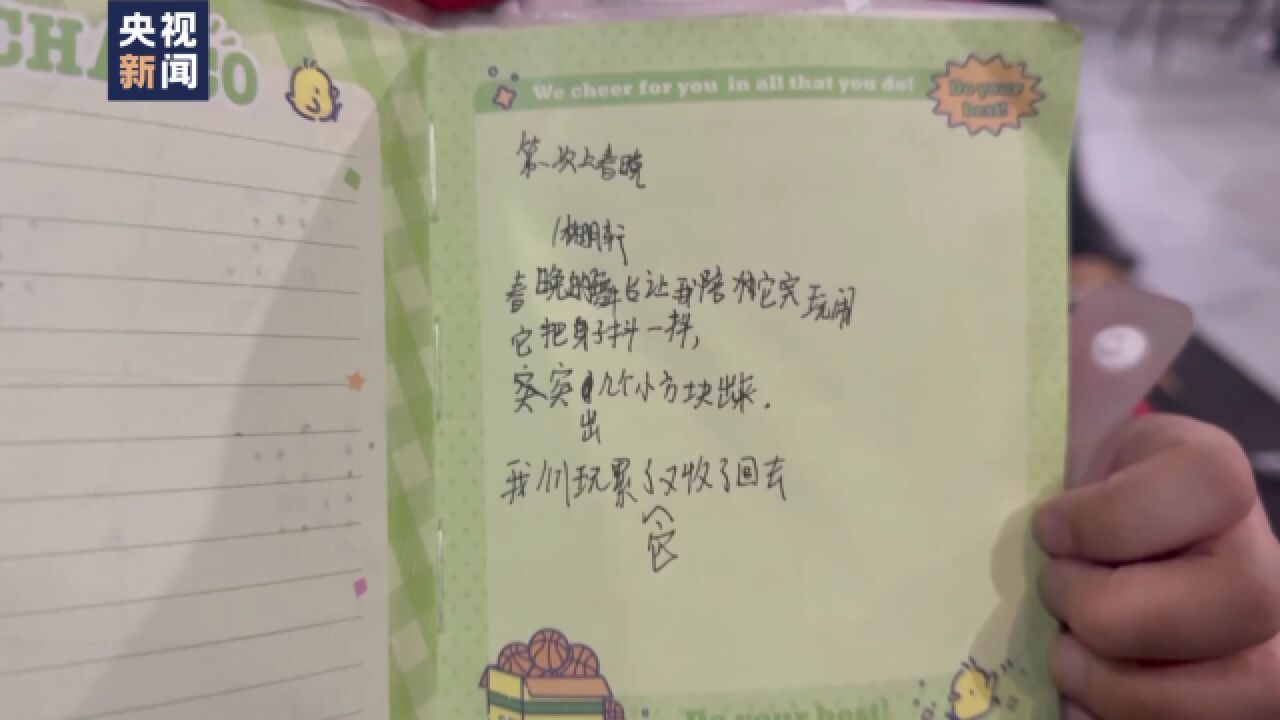 央视
新闻
We cheer for you in all that you do!
Do your
best!
第一次上春晓
春晚的舞台让我陪它突玩闹
它把身子抖一抖，
突突几个小方块出来.
出
我们玩累了又收了回去
它
Do your best!